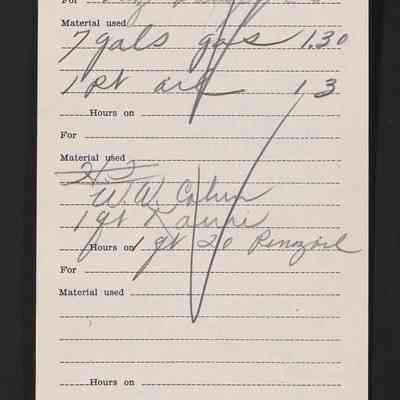 For
Material used
7 gals gas 1.30
1 pt oil 13
Hours on
For
Material used
W. W.
1 qt
Hours on 1 qt 20 Penzoil
For
Material used
Hours on